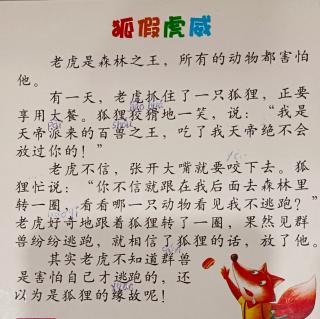 狐假虎威
老虎是森林之王，所有的动物都害怕
他。
有一天，老虎抓住了一只狐狸，正要
享用大餐。狐狸狡猾地一笑，说：“我是
天帝派来的百兽之王，吃了我天帝绝不会
放过你的！”
老虎不信，张开大嘴就要咬下去。狐
狸忙说：“你不信就跟在我后面去森林里
转一圈，看看哪一只动物看见我不逃跑？”
老虎好奇地跟着狐狸转了一圈，果然见群
兽纷纷逃跑，就相信了狐狸的话，放了他。
其实老虎不知道群兽
是害怕自己才逃跑的，还
以为是狐狸的缘故呢！